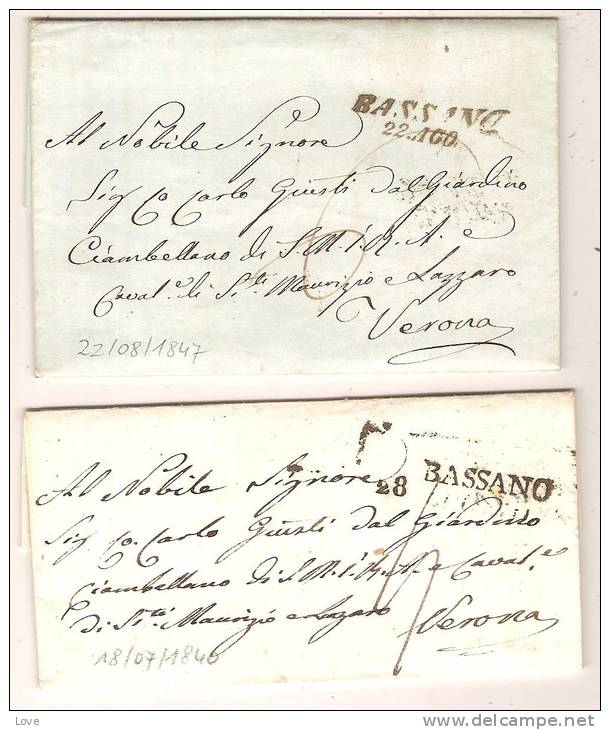 BASSANO
22.AGO.
Al Nobile Signore
Sig Co Carlo Giusti Dal Giardino
Ciambellano di S. M. i. R. A. e
Caval.e di S.ti Maurizio e Lazzaro
Verona
22/08/1847
28 BASSANO
Al Nobile Signore
Sig Co. Carlo Giusti Dal Giardino
Ciambellano di S. M. i. R. A. e Caval.e
di S.ti Maurizio e Lazaro
Verona
18/07/1840
Love
www.delcampe.net